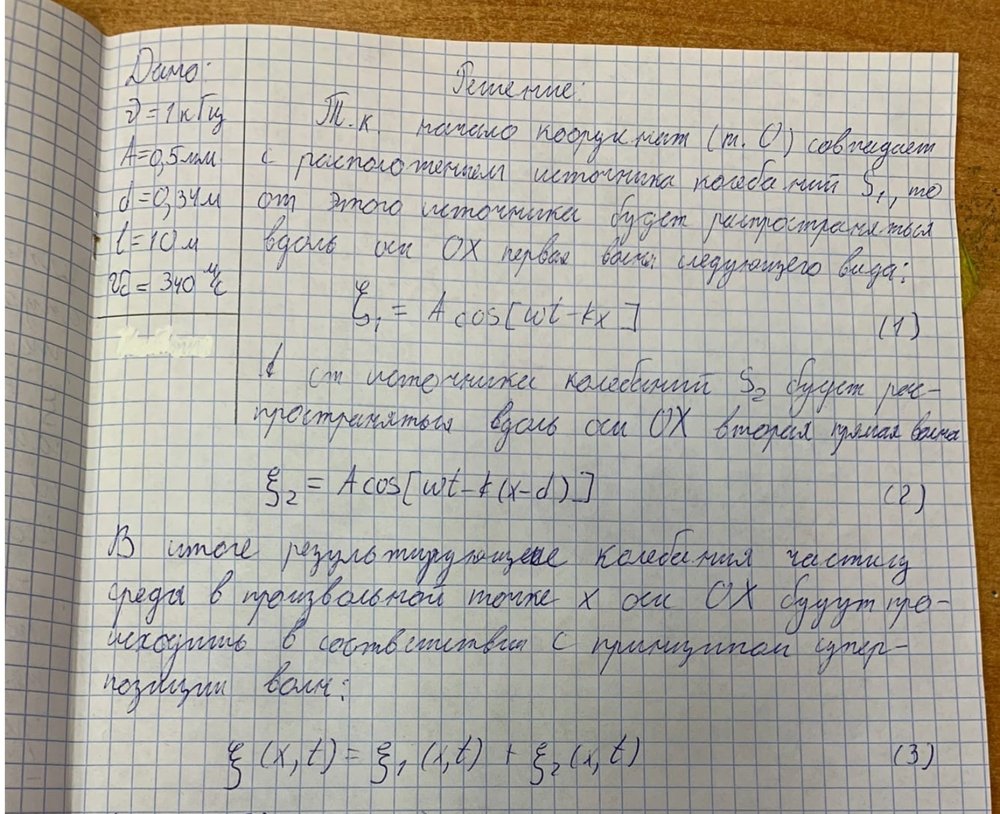 Дано:
ν = 1 кГц
A = 0,5 мм
d = 0,34 м
l = 10 м
v_c = 340 м/с
Решение:
Т.к. начало координат (т. О) совпадает
с расположением источника колебаний S₁, то
от этого источника будет распространяться
вдоль оси ОХ первая волна следующего вида:
ξ₁ = A cos[ωt-kx] (1)
А от источника колебаний S₂ будет рас-
пространяться вдоль оси ОХ вторая прямая волна
ξ₂ = A cos[ωt-k(x-d)] (2)
В итоге результирующее колебания частиц
среды в произвольной точке x оси ОХ будут про-
исходить в соответствии с принципом супер-
позиции волн:
ξ(x,t) = ξ₁(x,t) + ξ₂(x,t) (3)